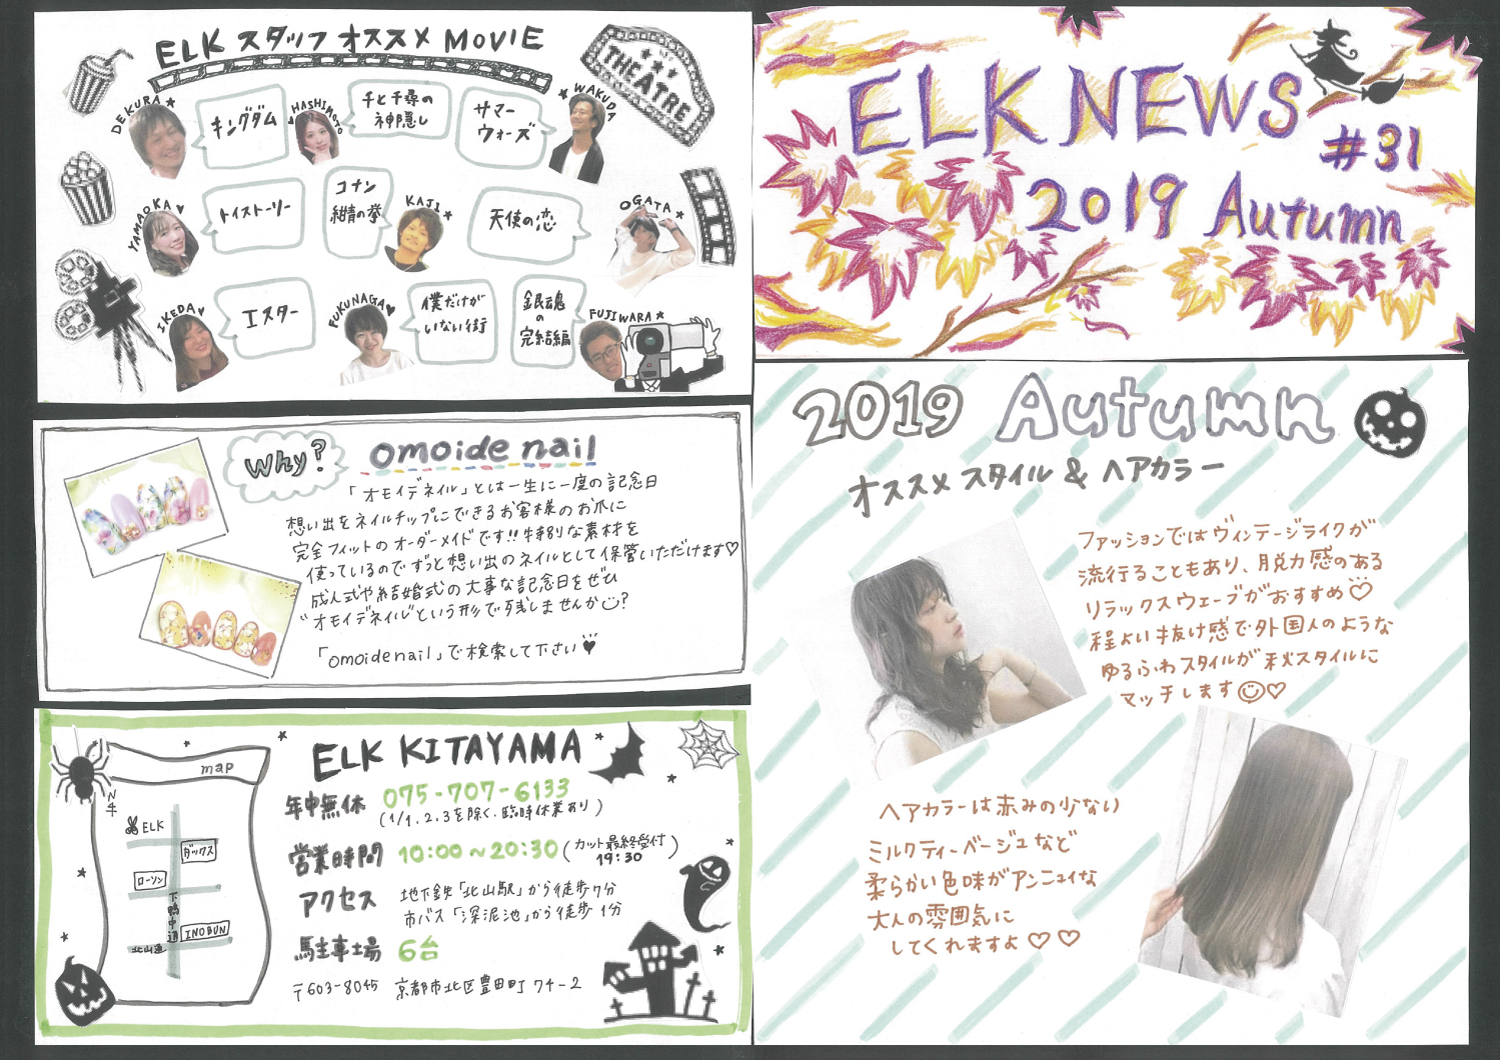 ELK スタッフ オススメ MOVIE
THEATRE
DEKURA★
キングダム
HASHIMOTO
千と千尋の
神隠し
サマー
ウォーズ
★WAKUDA
YAMAOKA♥
トイストーリー
コナン
紺青の拳
KAJI★
天使の恋
OGATA★
IKEDA♥
エスター
FUKUNAGA♥
僕だけが
いない街
銀魂
の
完結編
FUJIWARA★
Why?
omoide nail
「オモイデネイル」とは一生に一度の記念日
想い出をネイルチップにできるお客様のお爪に
完全フィットのオーダーメイドです!!特別な素材を
使っているのでずっと想い出のネイルとして保管いただけます♡
成人式や結婚式の大事な記念日をぜひ
"オモイデネイル"という形で残しませんか?
「omoidenail」で検索して下さい♥
ELK KITAYAMA
map
N
4
ELK
ダックス
ローソン
下鴨中通
INOBUN
北山通
年中無休 075-707-6133
(1/1.2.3を除く.臨時休業あり)
営業時間 10:00~20:30(カット最終受付
19:30)
アクセス 地下鉄「北山駅」から徒歩7分
市バス「深泥池」から徒歩1分
駐車場 6台
〒603-8045 京都市北区豊田町74-2
ELK NEWS
#31
2019 Autumn
2019 Autumn
オススメ スタイル & ヘアカラー
ファッションではヴィンテージライクが
流行ることもあり、脱力感のある
リラックスウェーブがおすすめ♡
程よい抜け感で外国人のような
ゆるふわスタイルが秋スタイルに
マッチします☺♡
ヘアカラーは赤みの少ない
ミルクティーベージュなど
柔らかい色味がアンニュイな
大人の雰囲気に
してくれますよ♡♡